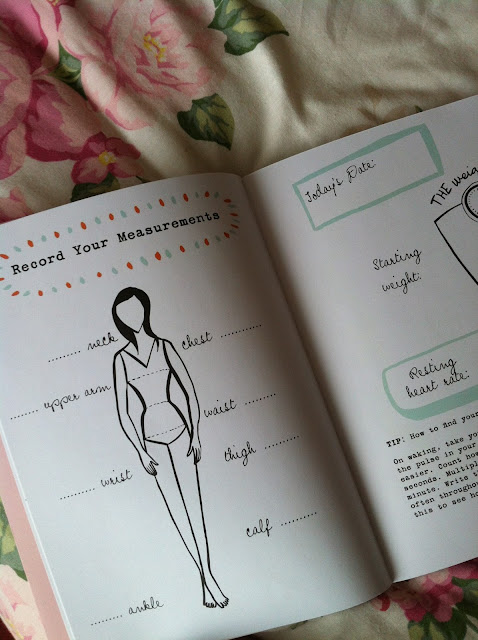 Record Your Measurements
......... neck
chest ...........
...... upper arm
waist .........
thigh .........
......... wrist
calf ..........
......... ankle
Today's Date:
THE
Starting
weight:
Resting
heart rate:
TIP: How to find your
On waking, take
the pulse in your
easier. Count
seconds.
minute. Write
often
this to see